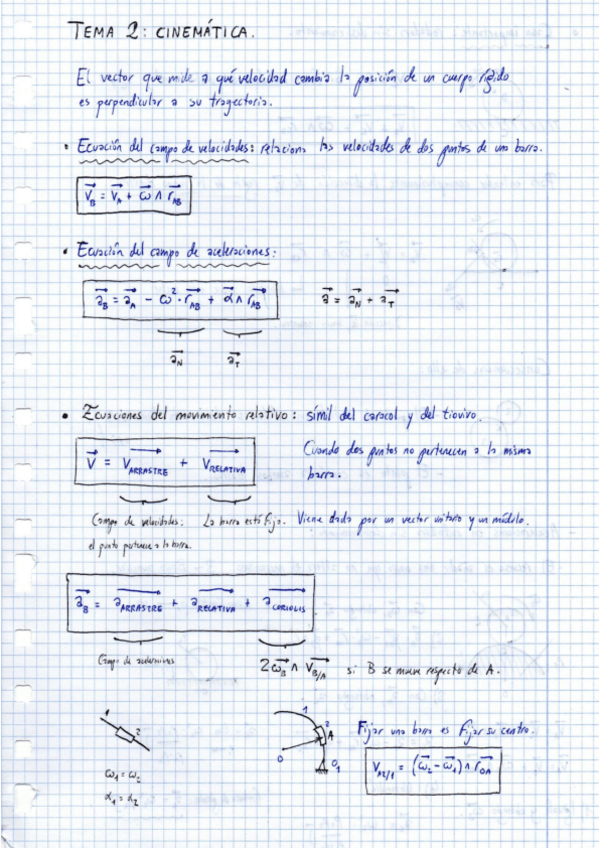 TEMA 2: CINEMÁTICA.
El vector que mide a qué velocidad cambia la posición de un cuerpo rígido
es perpendicular a su trayectoria.
• Ecuación del campo de velocidades: relaciona las velocidades de dos puntos de una barra.
V⃗_B = V⃗_A + ω⃗ ∧ r⃗_AB
• Ecuación del campo de aceleraciones:
a⃗_B = a⃗_A - ω² · r⃗_AB + α⃗ ∧ r⃗_AB
a⃗ = a⃗_N + a⃗_T
a⃗_N a⃗_T
• Ecuaciones del movimiento relativo: símil del caracol y del tiovivo.
V⃗ = V⃗_ARRASTRE + V⃗_RELATIVA
Cuando dos puntos no pertenecen a la misma
barra.
Campo de velocidades: La barra está fija. Viene dada por un vector unitario y un módulo.
el punto pertenece a la barra.
a⃗_B = a⃗_ARRASTRE + a⃗_RELATIVA + a⃗_CORIOLIS
Campo de aceleraciones
2ω⃗_B ∧ V⃗_B/A si B se mueve respecto de A.
1 2
ω₁ = ω₂
α₁ = α₂
1 2 A O O₁
Fijar una barra es fijar su centro.
V_A2/1 = (ω⃗₂ - ω⃗₁) ∧ r⃗_OA